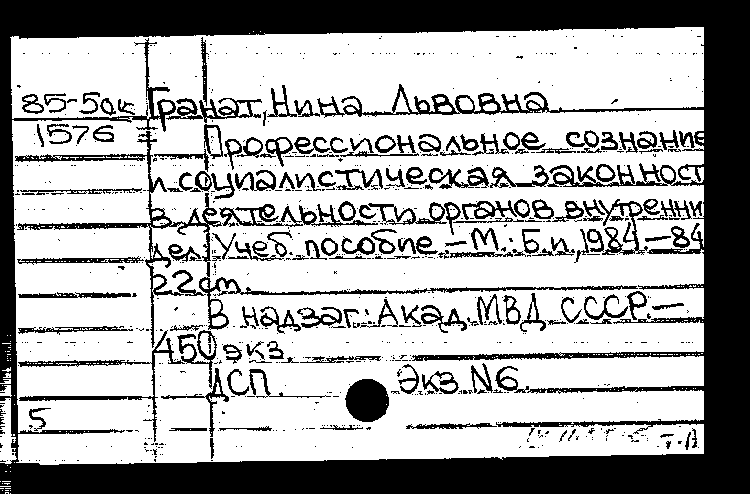 85-5дк Гранат, Нина Львовна
1576 Профессиональное сознание
и социалистическая законност
в деятельности органов внутренни
дел: Учеб. пособие.—М.: Б.и, 1984.—84
22 cm.
В надзаг: Акад. МВД СССР.—
450 экз.
ДСП. Экз N6.
5
Т.А